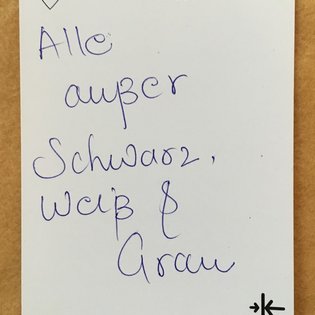 Alle
außer
Schwarz,
Weiß &
Grau